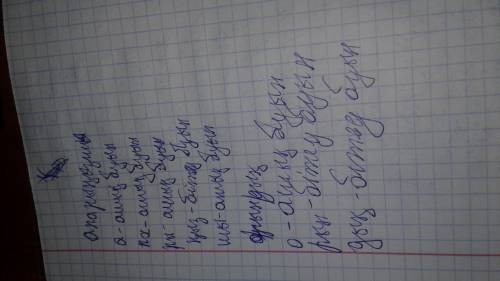 апарыңызшы
а - ашық буын
па - ашық буын
ры - ашық буын
ңыз - бітеу буын
шы - ашық буын
орындық
о - ашық буын
рын - бітеу буын
дық - бітеу буын